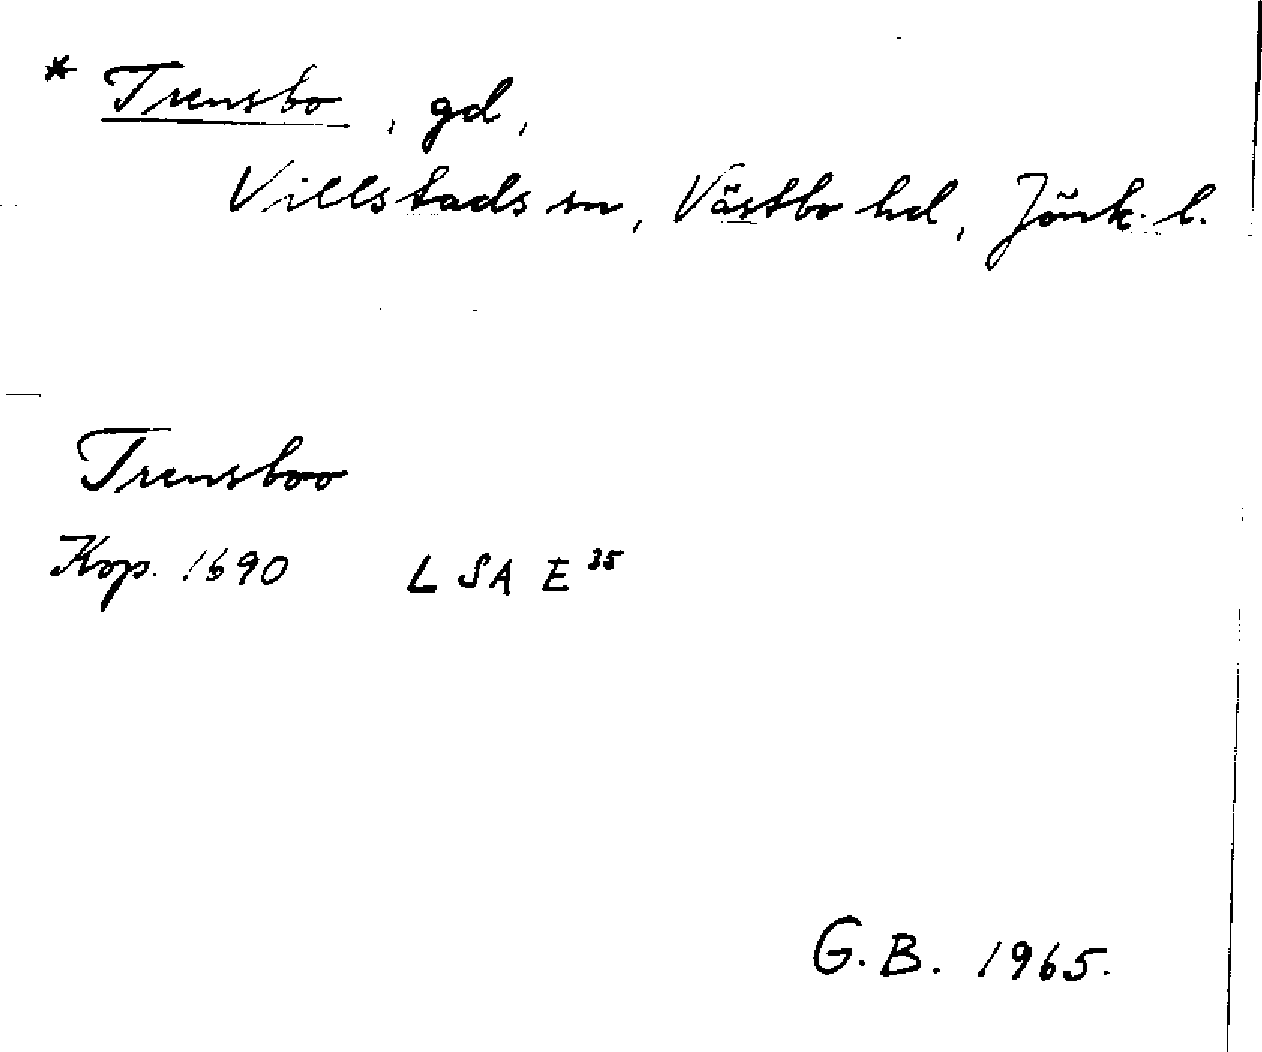 * Trensbo, gd,
Villstads sn, Västbo hd, Jönk. l.
Trensboo
Kop. 1690 LSA E 35
G.B. 1965.